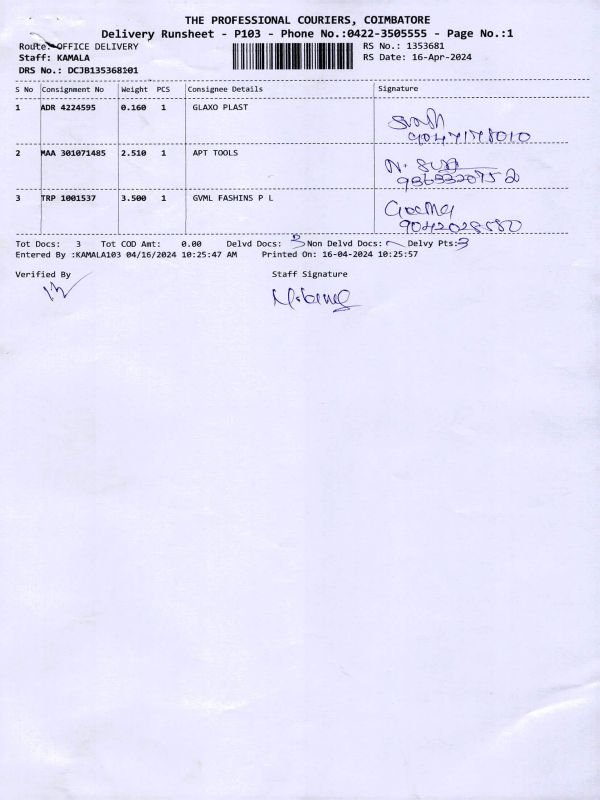 THE PROFESSIONAL COURIERS, COIMBATORE
Delivery Runsheet - P103 - Phone No.:0422-3505555 - Page No.:1
Route: OFFICE DELIVERY
RS No.: 1353681
Staff: KAMALA
RS Date: 16-Apr-2024
DRS No.: DCJB135368101
S No Consignment No Weight PCS Consignee Details Signature
1 ADR 4224595 0.160 1 GLAXO PLAST
2 MAA 301071485 2.510 1 APT TOOLS
3 TRP 1001537 3.500 1 GVML FASHINS P L
Tot Docs: 3 Tot COD Amt: 0.00 Delvd Docs: 3 Non Delvd Docs: Delvy Pts: 3
Entered By :KAMALA103 04/16/2024 10:25:47 AM Printed On: 16-04-2024 10:25:57
Verified By Staff Signature